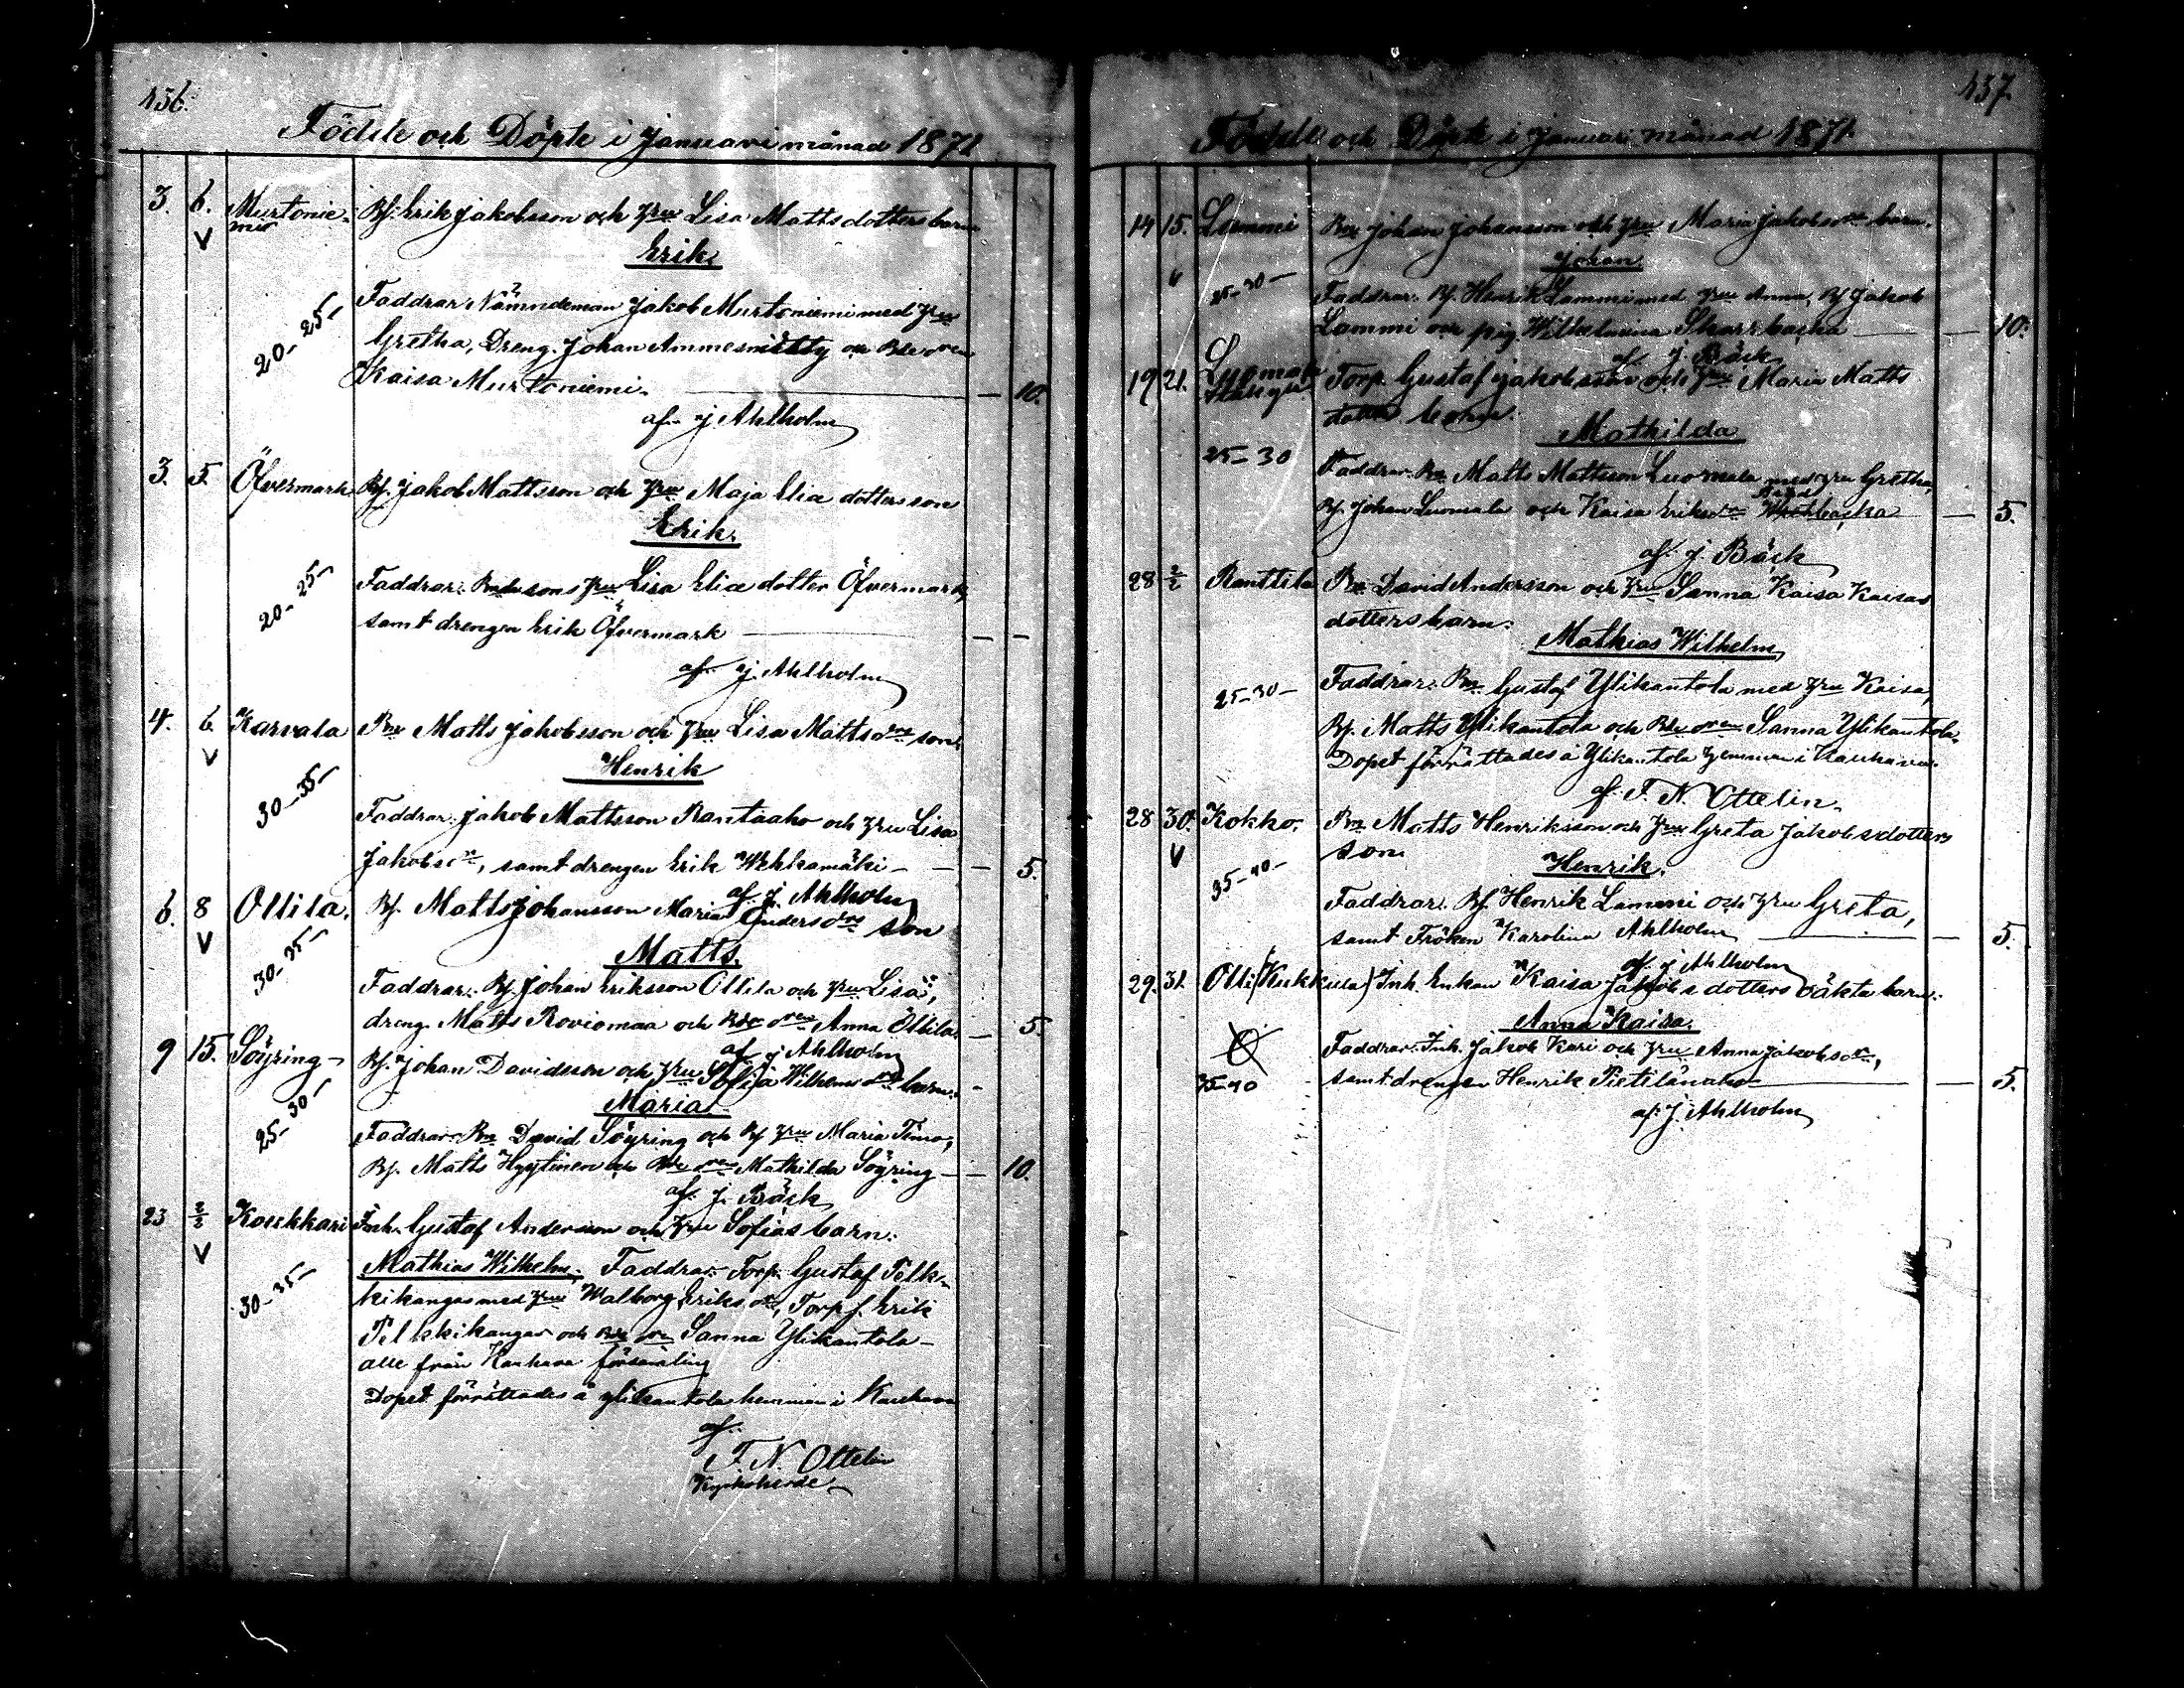 156.
Födde och Döpte i Januari månad 1871
3. 6. Murtonie-
mis Bf. Erik Jakobsson och Hru Lisa Mattsdotters barn
Erik.
20-25- Faddrar: Nämndeman Jakob Murtoniemi med Hru
Gretha, Dreng. Johan Ammesmäki och Bde dren
Kaisa Murtoniemi. — — 10.
af J. Ahlholm
3. 5. Öfvermark Bf. Jakob Mattsson och Hru Maja Eliæ dotters son
Erik.
20-25- Faddrar: Bondesons Hru Lisa Eliæ dotter Öfvermark,
samt drengen Erik Öfvermark — — —
af J. Ahlholm
4. 6. Karvala Bn Matts Jakobsson och Hru Lisa Mattsdrs son.
Henrik
30-35- Faddrar: Jakob Mattsson Rantaaho och Hru Lisa
Jakobsdr, samt drengen Erik Wehkamäki — — 5.
af J. Ahlholm
6. 8 Ollila. Bf. Matts Johansson Maria Andersdrs son
Matts.
30-35- Faddrar: Bf. Johan Eriksson Ollila och Hru Lisa,
dreng. Matts Roviomaa och Bde dren Anna Ollila. — 5.
af J. Ahlholm
9 15. Söyring- Bf. Johan Davidsson och Hru Sofia Wilhelmsdrs barn. -
Maria.
25-30- Faddrar: Bn David Söyring och Bf Hru Maria Timo,
Bf. Matts Hyytinen och Bde dren Mathilda Söyring — — 10.
af J. Bäck
23 2/2 Koukkari Inh. Gustaf Andersson och Hru Sofias barn.
Mathias Wilhelm. Faddrar: Torp. Gustaf Pelk-
30-35- kikangas med Hru Walborg Eriksdr, Torpf. Erik
Pelkkikangas och Bde dr Sanna Ylikantola —
alle från Kauhava församling
Dopet förrättades å Ylikantola hemman i Kauhava
af
F. N. Ottelin
Kyrkoherde
157.
Födde och Döpte i Januari månad 1871.
14 15. Lammi Bn Johan Johansson och Hru Maria Jakobsdrs barn.
Johan
25-30- Faddrar: Bf. Henrik Lammi med Hru Anna, Bf Jakob
Lammi och pig. Wilhelmina Skarrbacka — — 10.
af J. Bäck
19 21. Luomala
Torp. Gustaf Jakobsson och Hru Maria Matts
dotters barn.
Mathilda
25-30 Faddrar: Bn Matts Mattsson Luomala med Hru Gretha,
Bf. Johan Luomala och Kaisa Eriksdr — 5.
af J. Bäck
28 2/2 Ranttila Bn David Andersson och Hru Sanna Kaisa Kaisas
dotters barn:
Mathias Wilhelm,
25-30- Faddrar: Bn Gustaf Ylikantola med Hru Kaisa,
Bf. Matts Ylikantola och Bde dren Sanna Ylikantola.
Dopet förrättades å Ylikantola hemman i Kauhava.
af F. N. Ottelin.
28 30. Kokko. Bn Matts Henriksson och Hru Greta Jakobsdotters
son
Henrik.
35-40- Faddrar: Bf Henrik Lammi och Hru Greta,
samt Fröken Karolina Ahlholm — — 5.
af J. Ahlholm
29. 31. Olli (Kukkula) Inh. Enkan Kaisa Jakobs dotters oäkta barn:
Anna Kaisa.
Faddrar: Inh. Jakob Kari och Hru Anna Jakobsdr,
35-40 samt drengen Henrik Pietilänaho — — 5.
af J. Ahlholm